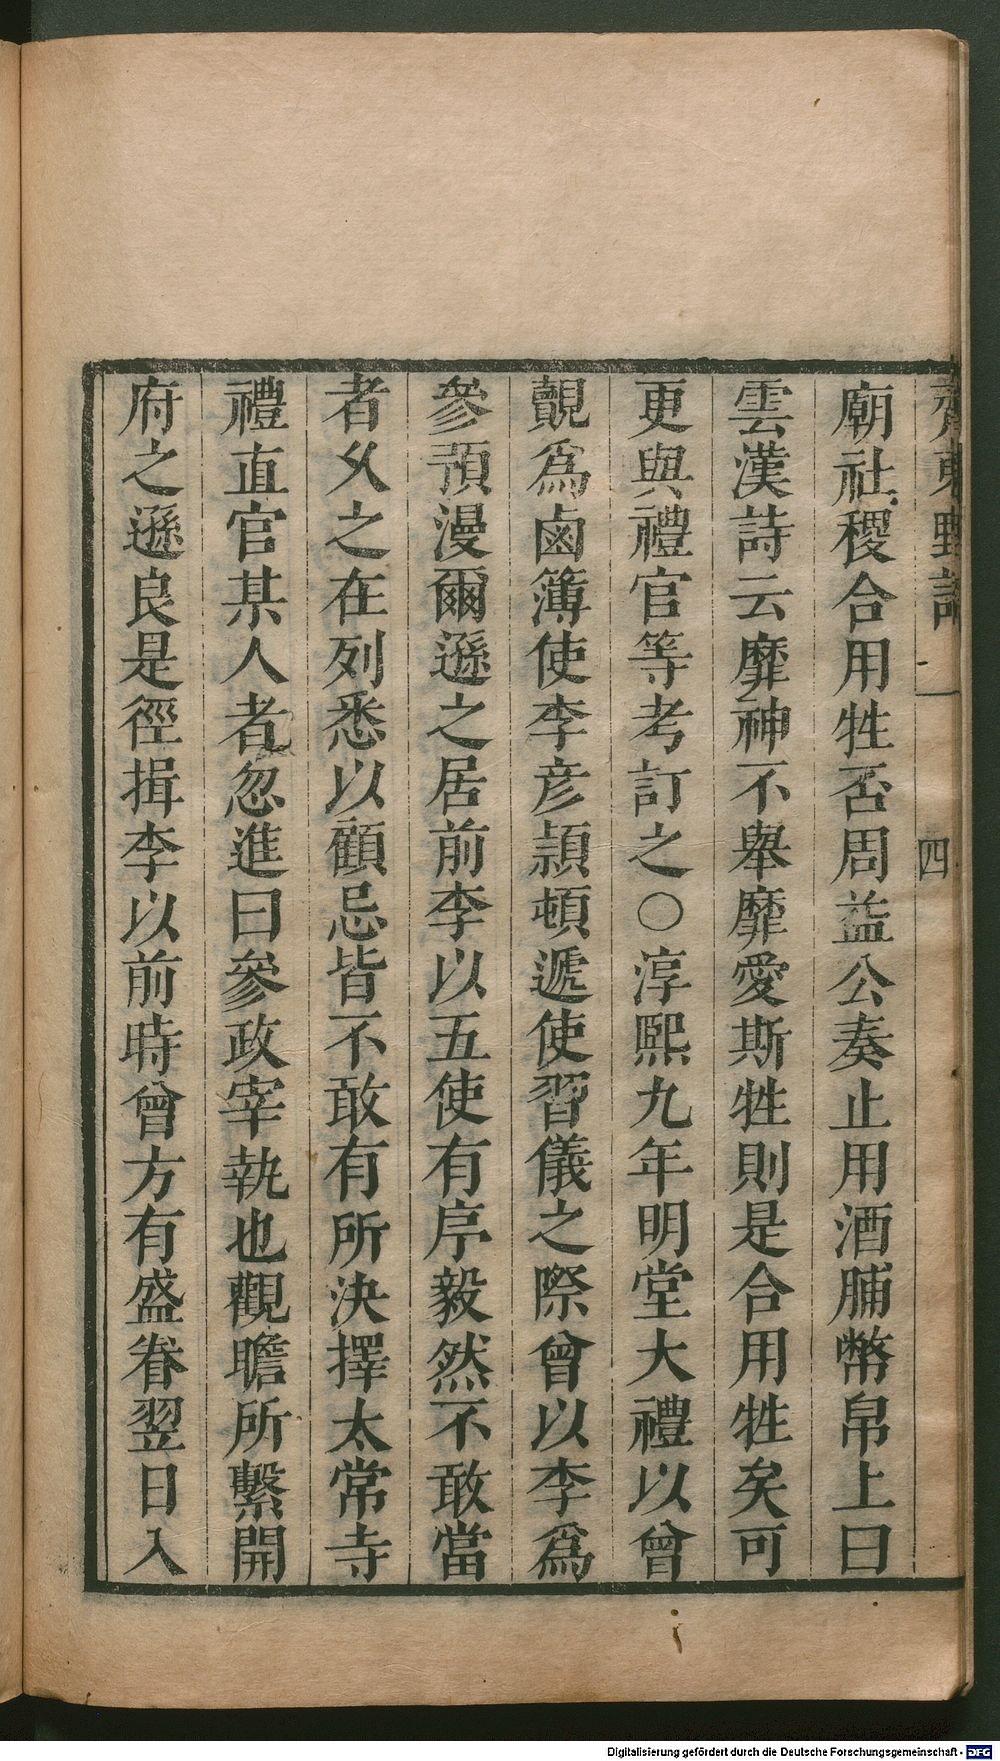 齊東野語 一 四
廟社稷合用牲否周益公奏止用酒脯幣帛上曰
雲漢詩云靡神不舉靡愛斯牲則是合用牲矣可
更與禮官等考訂之○淳熙九年明堂大禮以曾
覿爲鹵簿使李彦頴頓遞使習儀之際曾以李爲
參預漫爾遜之居前李以五使有序毅然不敢當
者乆之在列悉以顧忌皆不敢有所決擇太常寺
禮直官某人者忽進曰參政宰執也觀瞻所繫開
府之遜良是徑揖李以前時曾方有盛眷翌日入
Digitalisierung gefördert durch die Deutsche Forschungsgemeinschaft - DFG